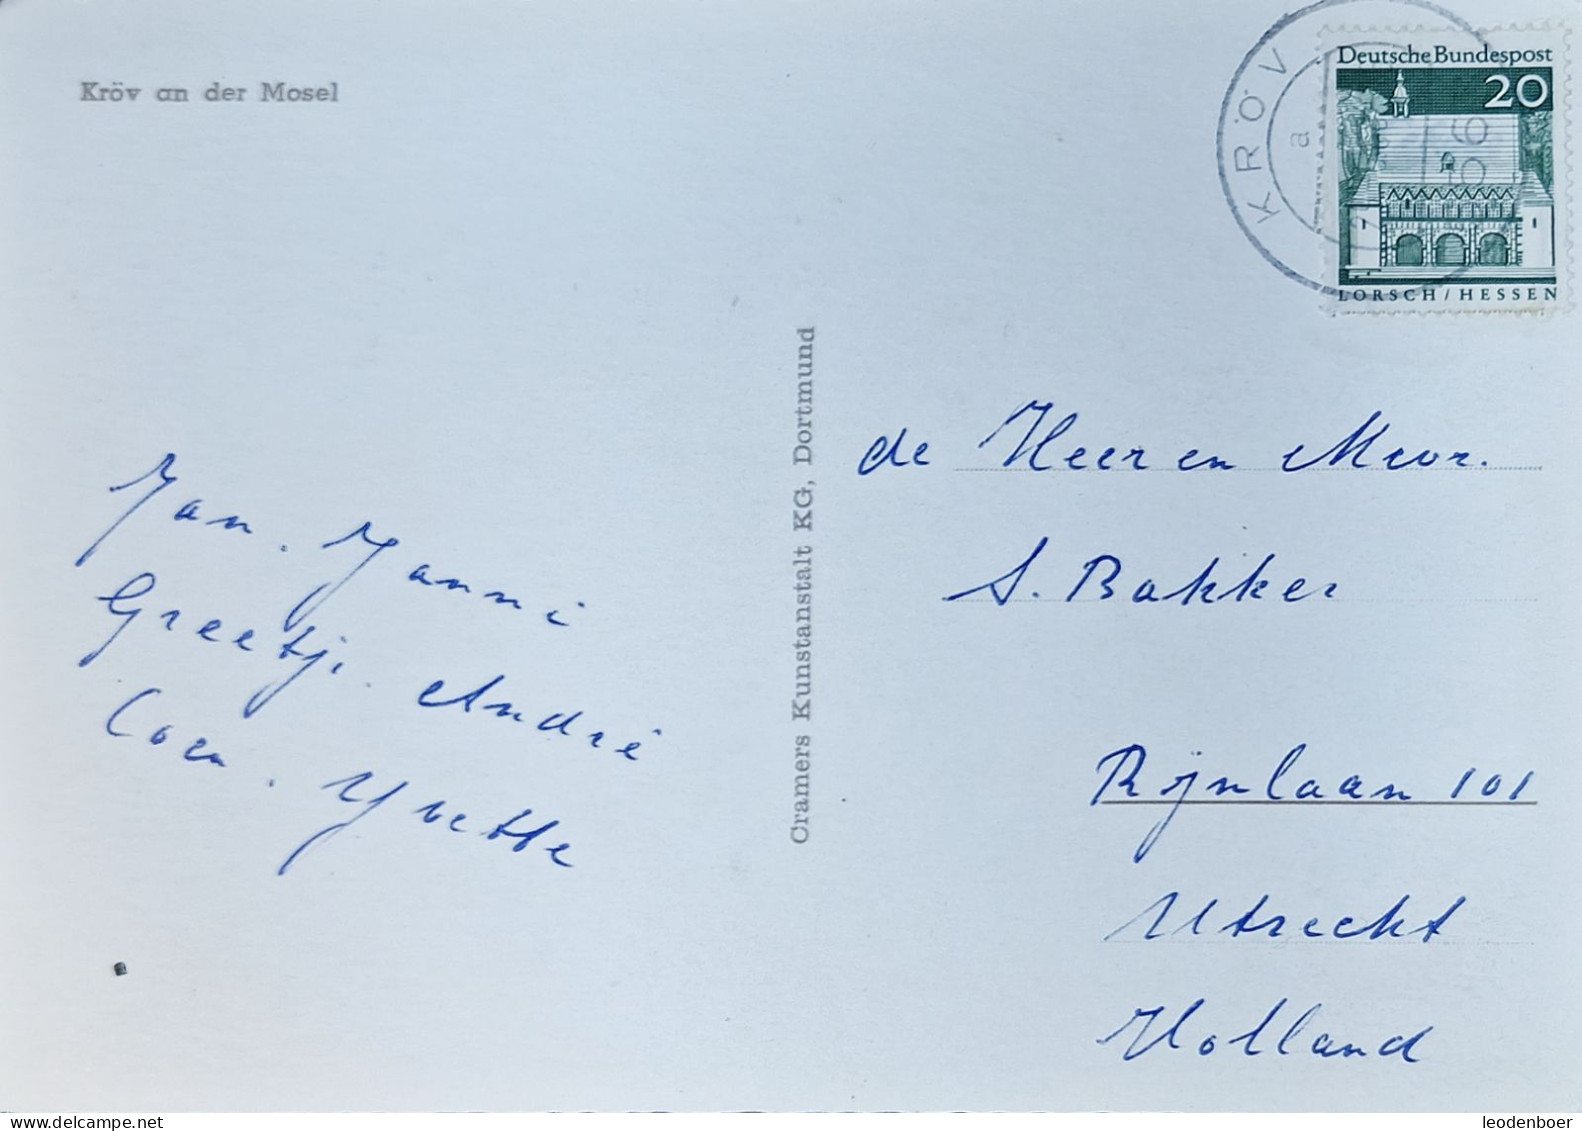 Kröv an der Mosel
KRÖV
a
Deutsche Bundespost
20
LORSCH / HESSEN
Jan. Janni
Greetj. André
Coen. Yvette
Cramers Kunstanstalt KG, Dortmund
de Heer en Mevr.
S. Bakker
Rijnlaan 101
Utrecht
Holland
leodenboer